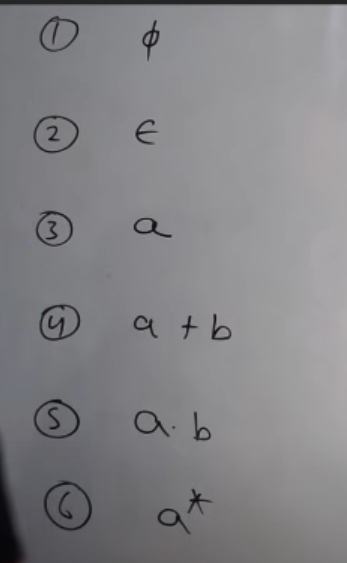 ① ϕ
② ϵ
③ a
④ a + b
⑤ a . b
⑥ a*